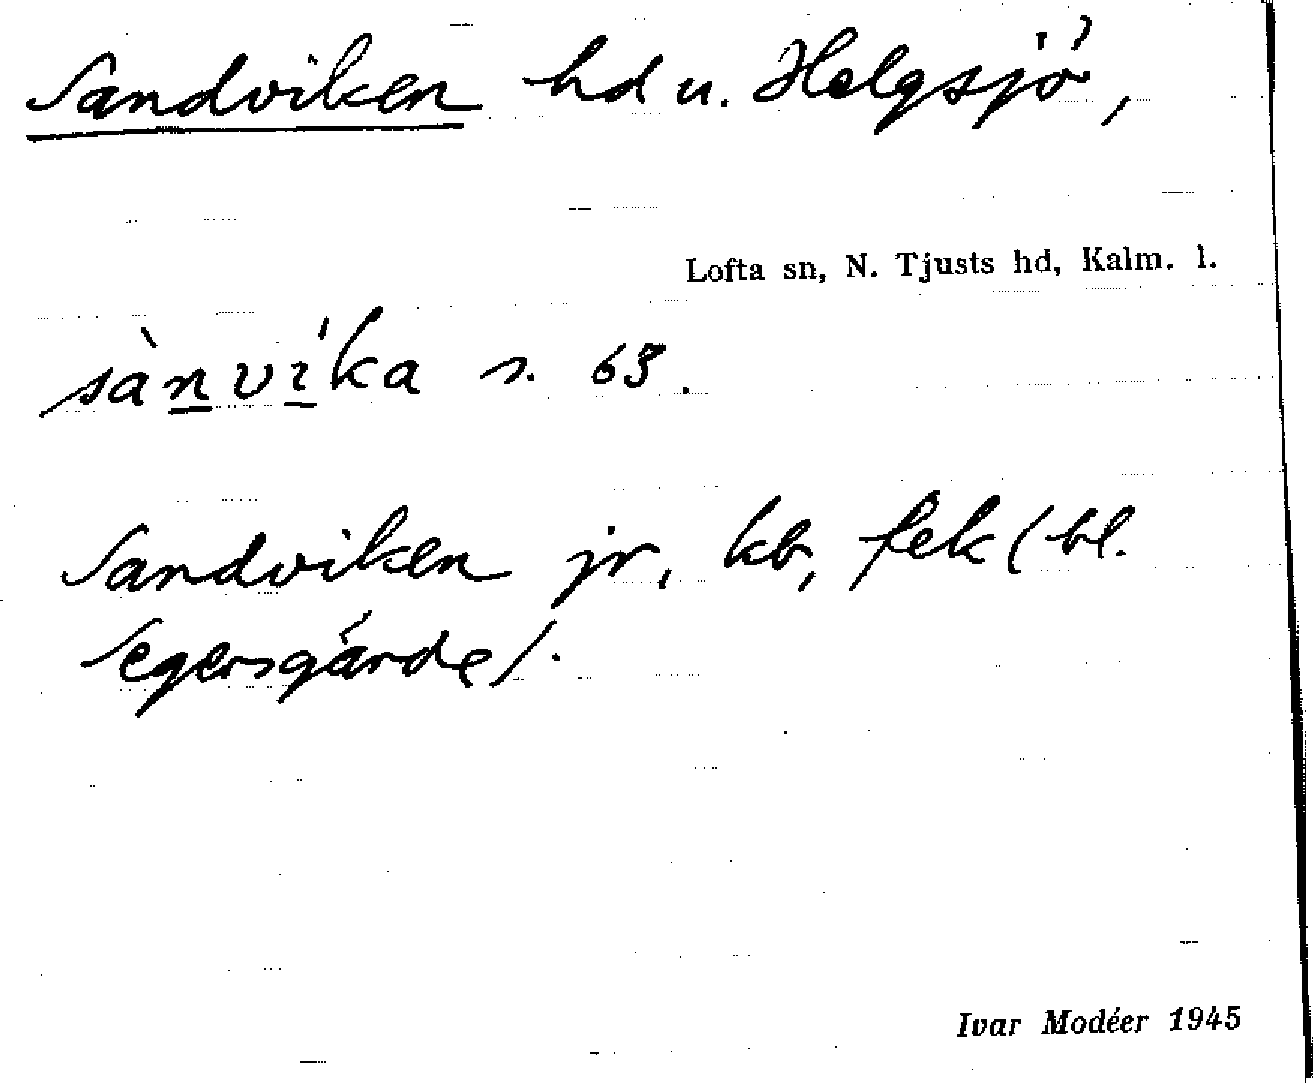 Sandviken hd u. Helgsjö,
Lofta sn, N. Tjusts hd, Kalm. l.
sànvíka s. 63.
Sandviken jr, kb, fek (bl.
Segersgärde).
Ivar Modéer 1945